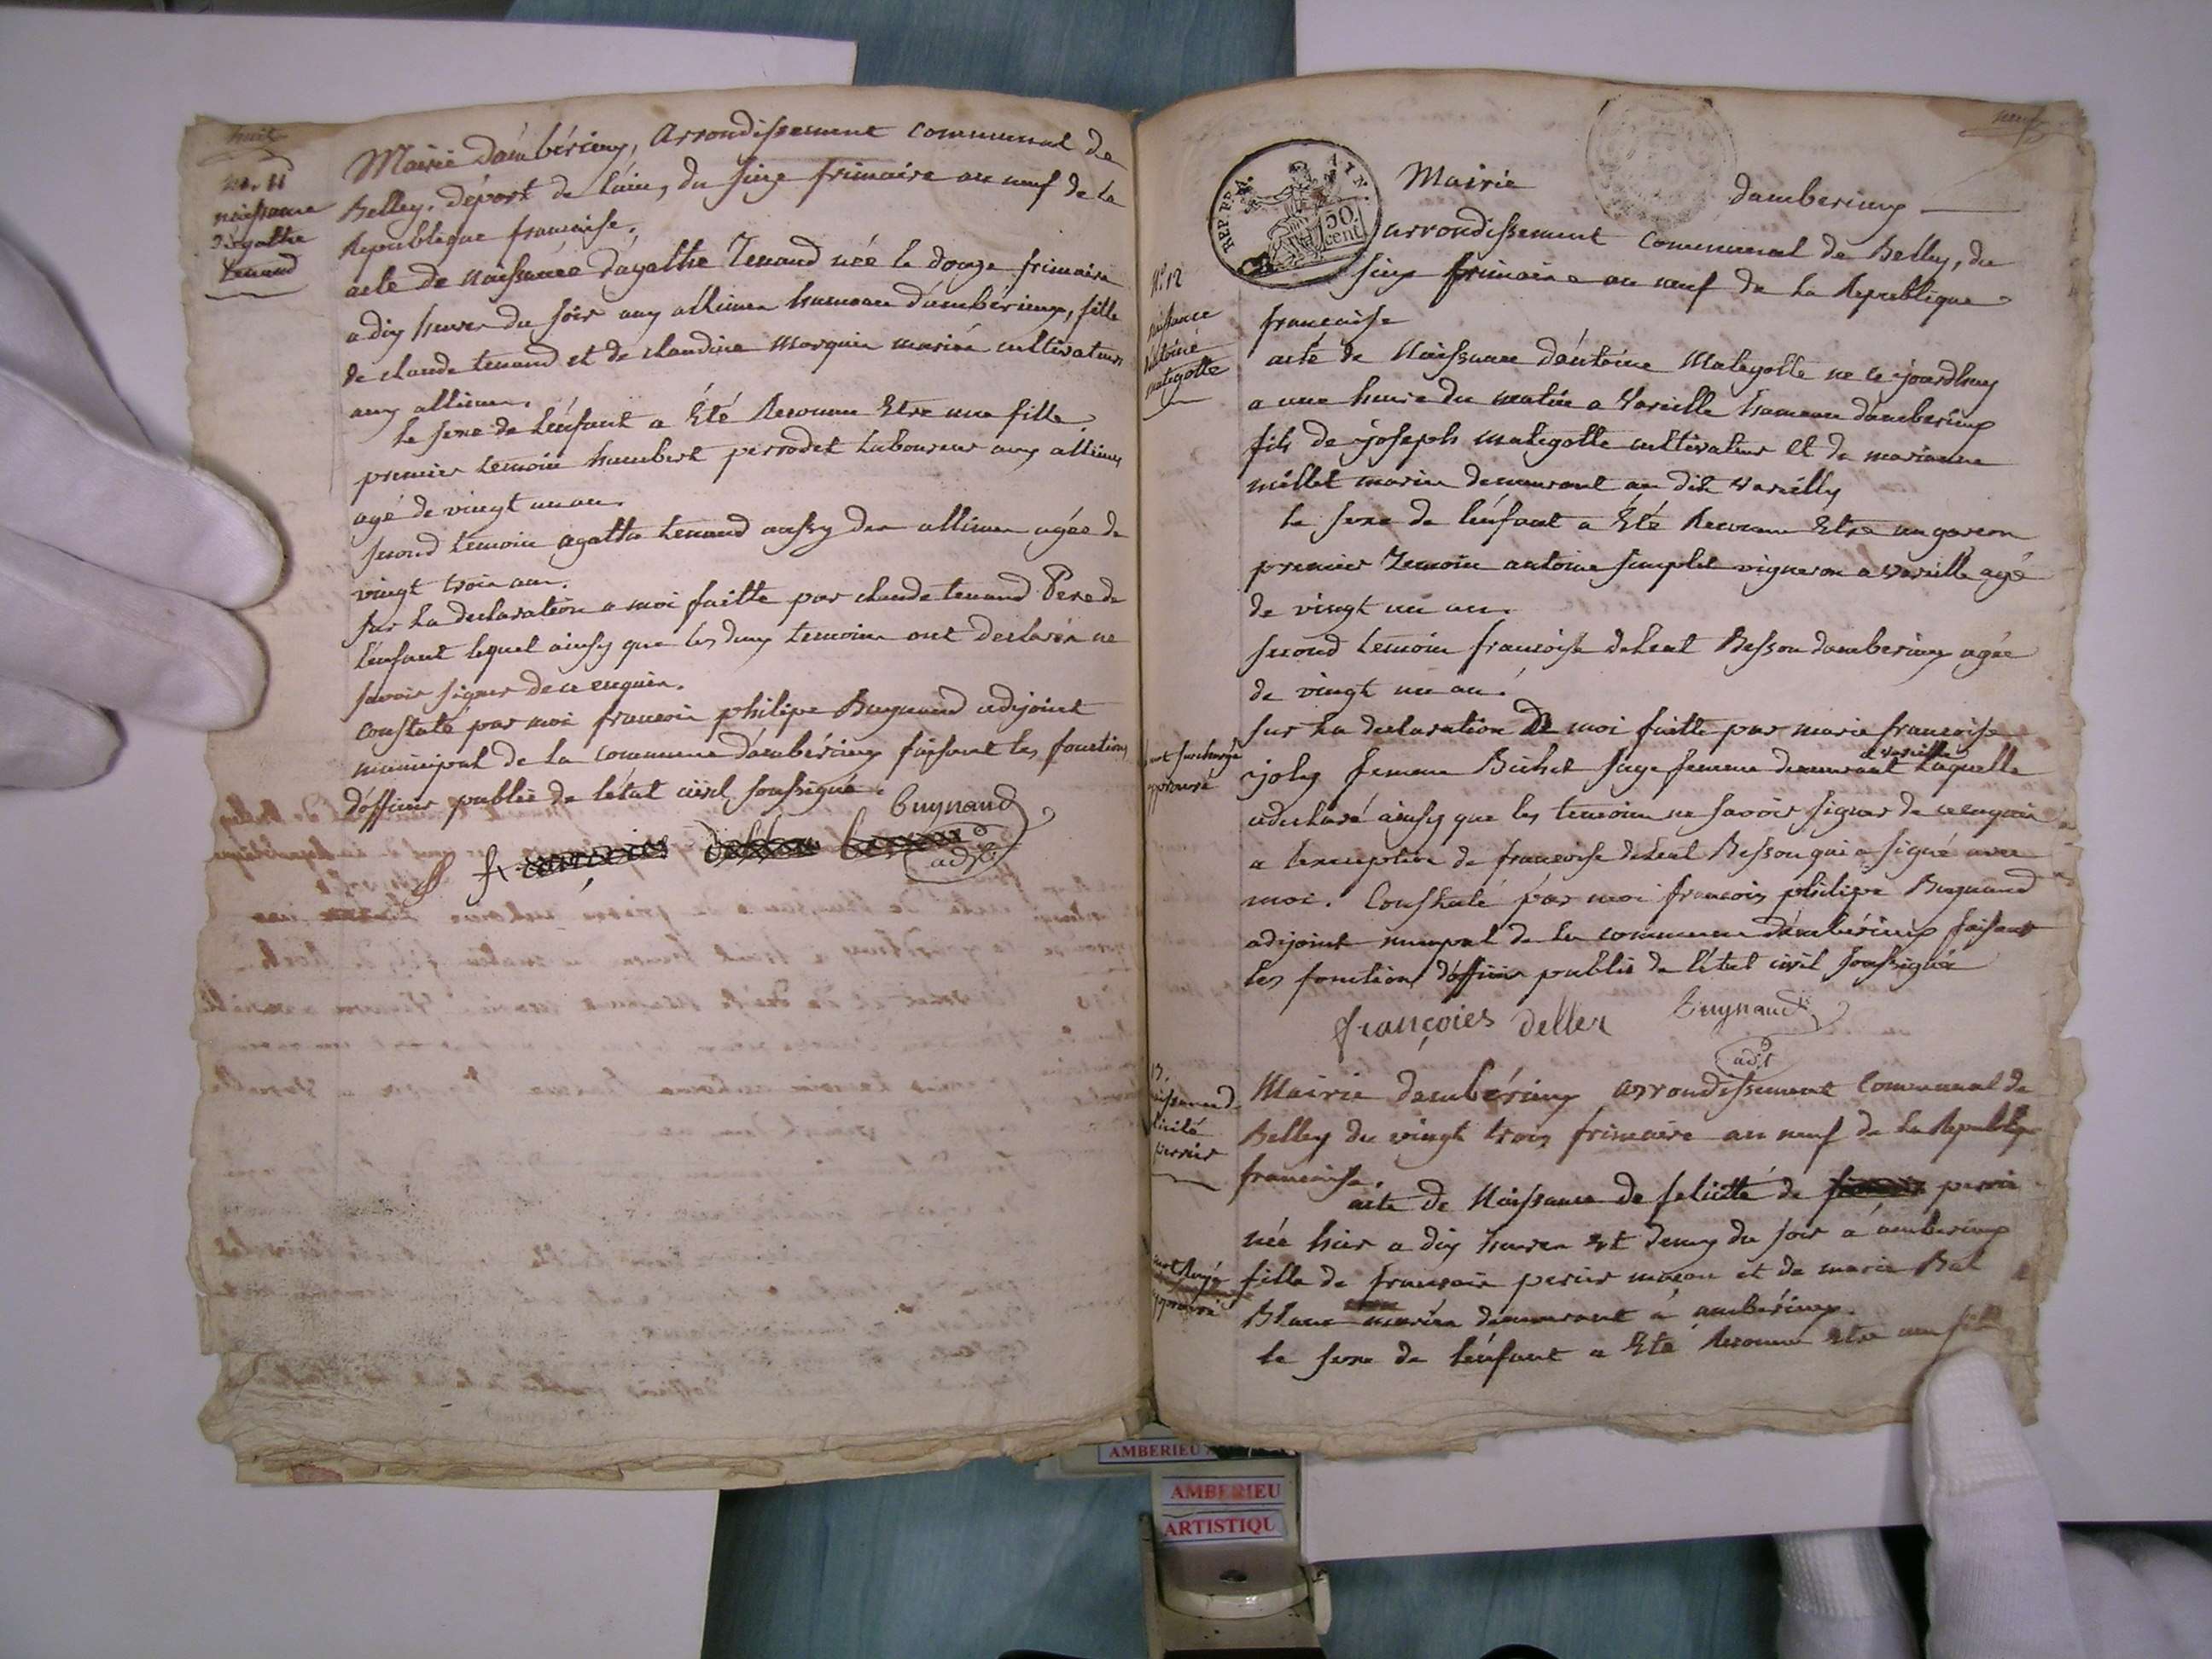 huit
no. 11
naissance
d'agathe
tenand
Mairie dambérieux, arrondissement communal de
Belley. départ de l'ain, du seize frimaire an neuf de la
Republique francaise.
acte de naissance d'agathe Tenand née le douze frimaire
a dix heures du soir aux allimes hameau dambérieux, fille
de claude tenand et de claudine Marquin mariés cultivateurs
aux allimes.
le sexe de lenfant a Eté Reconnu Etre une fille.
premier temoin humbert perrodet laboureur aux allimes
agé de vingt un an.
second temoin agathe tenand aussy des allimes agée de
vingt trois ans.
sur la declaration a moi faitte par claude tenand Pere de
lenfant lequel ainsy que les deux temoins ont declarés ne
savoir signer de ce enquis.
constaté par moi francois philipe Bugnand adjoint
municipal de la commune dambérieux faisant les fonctions
dofficier public de létat civil soussigné.
bugnand
adjt
neuf
REP. FRA. AIN.
50 cent
Mairie dambérieux
arrondissement communal de Belley, du
seize frimaire an neuf de la Republique
francaise
N.° 12
naissance
d'antoine
matigotte
acte de Naissance dantoine Matigotte ne ce jourdhuy
a une heure du matin a Vareille hameau dambérieux
fils de joseph matigotte cultivateur et de marianne
millet mariés demeurant au dit Vareilly
le sexe de lenfant a Eté Reconnu Etre un garcon
premier Temoin antoine simplet vigneron a Vareille agé
de vingt un an.
second temoin francoise deleat Besson dambérieux agée
de vingt un an.
sur la declaration a moi faitte par marie francoise
mot surchargé
approuvé
joly femme Bichet sage femme demeurant a vareille laquelle
a declaré ainsy que les temoins ne savoir signer de ce enquis
a l'exception de francoise deleat Besson qui a signé avec
moi. Constaté par moi francois philipe Bugnand
adjoint municipal de la commune dambérieux faisant
les fonctions dofficier public de létat civil soussigné
françoies deller bugnand
adjt
13.
naissance de
felicité
perrier
Mairie dambérieux arrondissement Communal de
Belley du vingt trois frimaire an neuf de la Republique
francaise.
acte de Naissance de felicitté de perrier
née hier a dix heures Et demy du soir a ambérieux
fille de francois perier macon et de marie Bal
mot Rayé
approuvé
Blanc mariés demeurant a ambérieux.
le sexe de lenfant a Eté Reconnu Etre une fille
AMBERIEU
AMBERIEU
ARTISTIQU